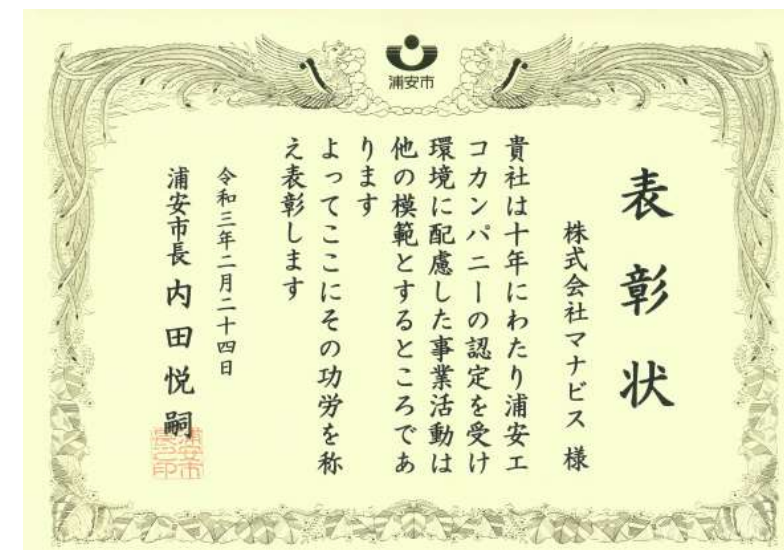 浦安市
表彰状
株式会社マナビス 様
貴社は十年にわたり浦安エ
コカンパニーの認定を受け
環境に配慮した事業活動は
他の模範とするところであ
ります
よってここにその功労を称
え表彰します
令和三年二月二十四日
浦安市長 内田悦嗣
浦安市
長之印